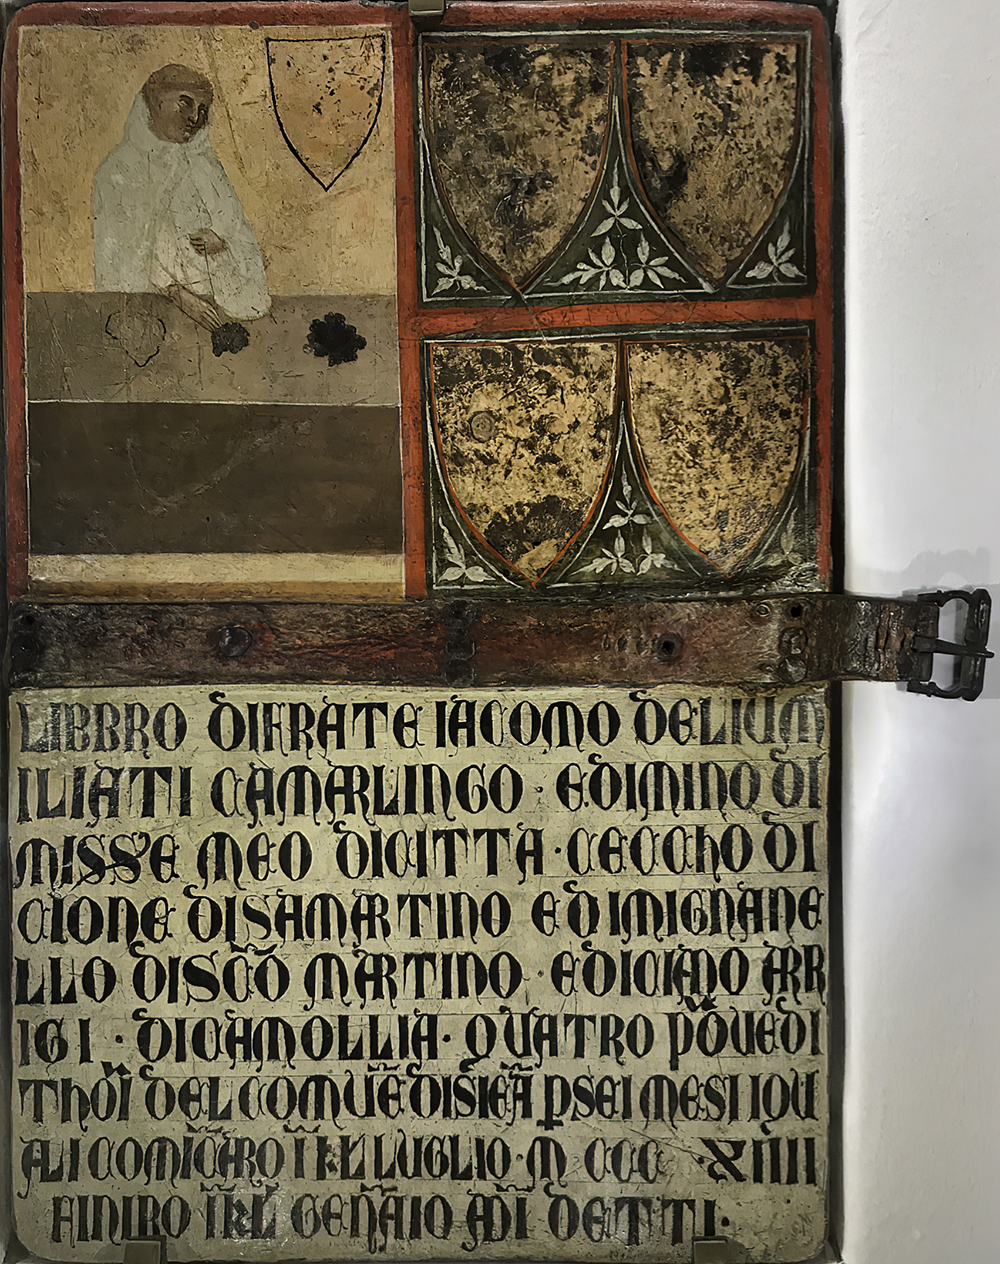 LIBBRO DIFRATE IACOMO DELIUM
ILIATI CAMARLINGO · EDIMINO DI
MISS'E MEO DICITTA · CECCHO DI
CIONE DISAMARTINO EDIMIGNANE
LLO DISCO MARTINO · EDICIANO ARR
IGI · DICAMOLLIA · QUATRO POVEDI
THORI DEL COMUE DISIEA PSEI MESI IQU
ALI COMICARO I KL LUGLIO · M CCC · XIIII
FINIRO I KL GENAIO ADI DETTI ·